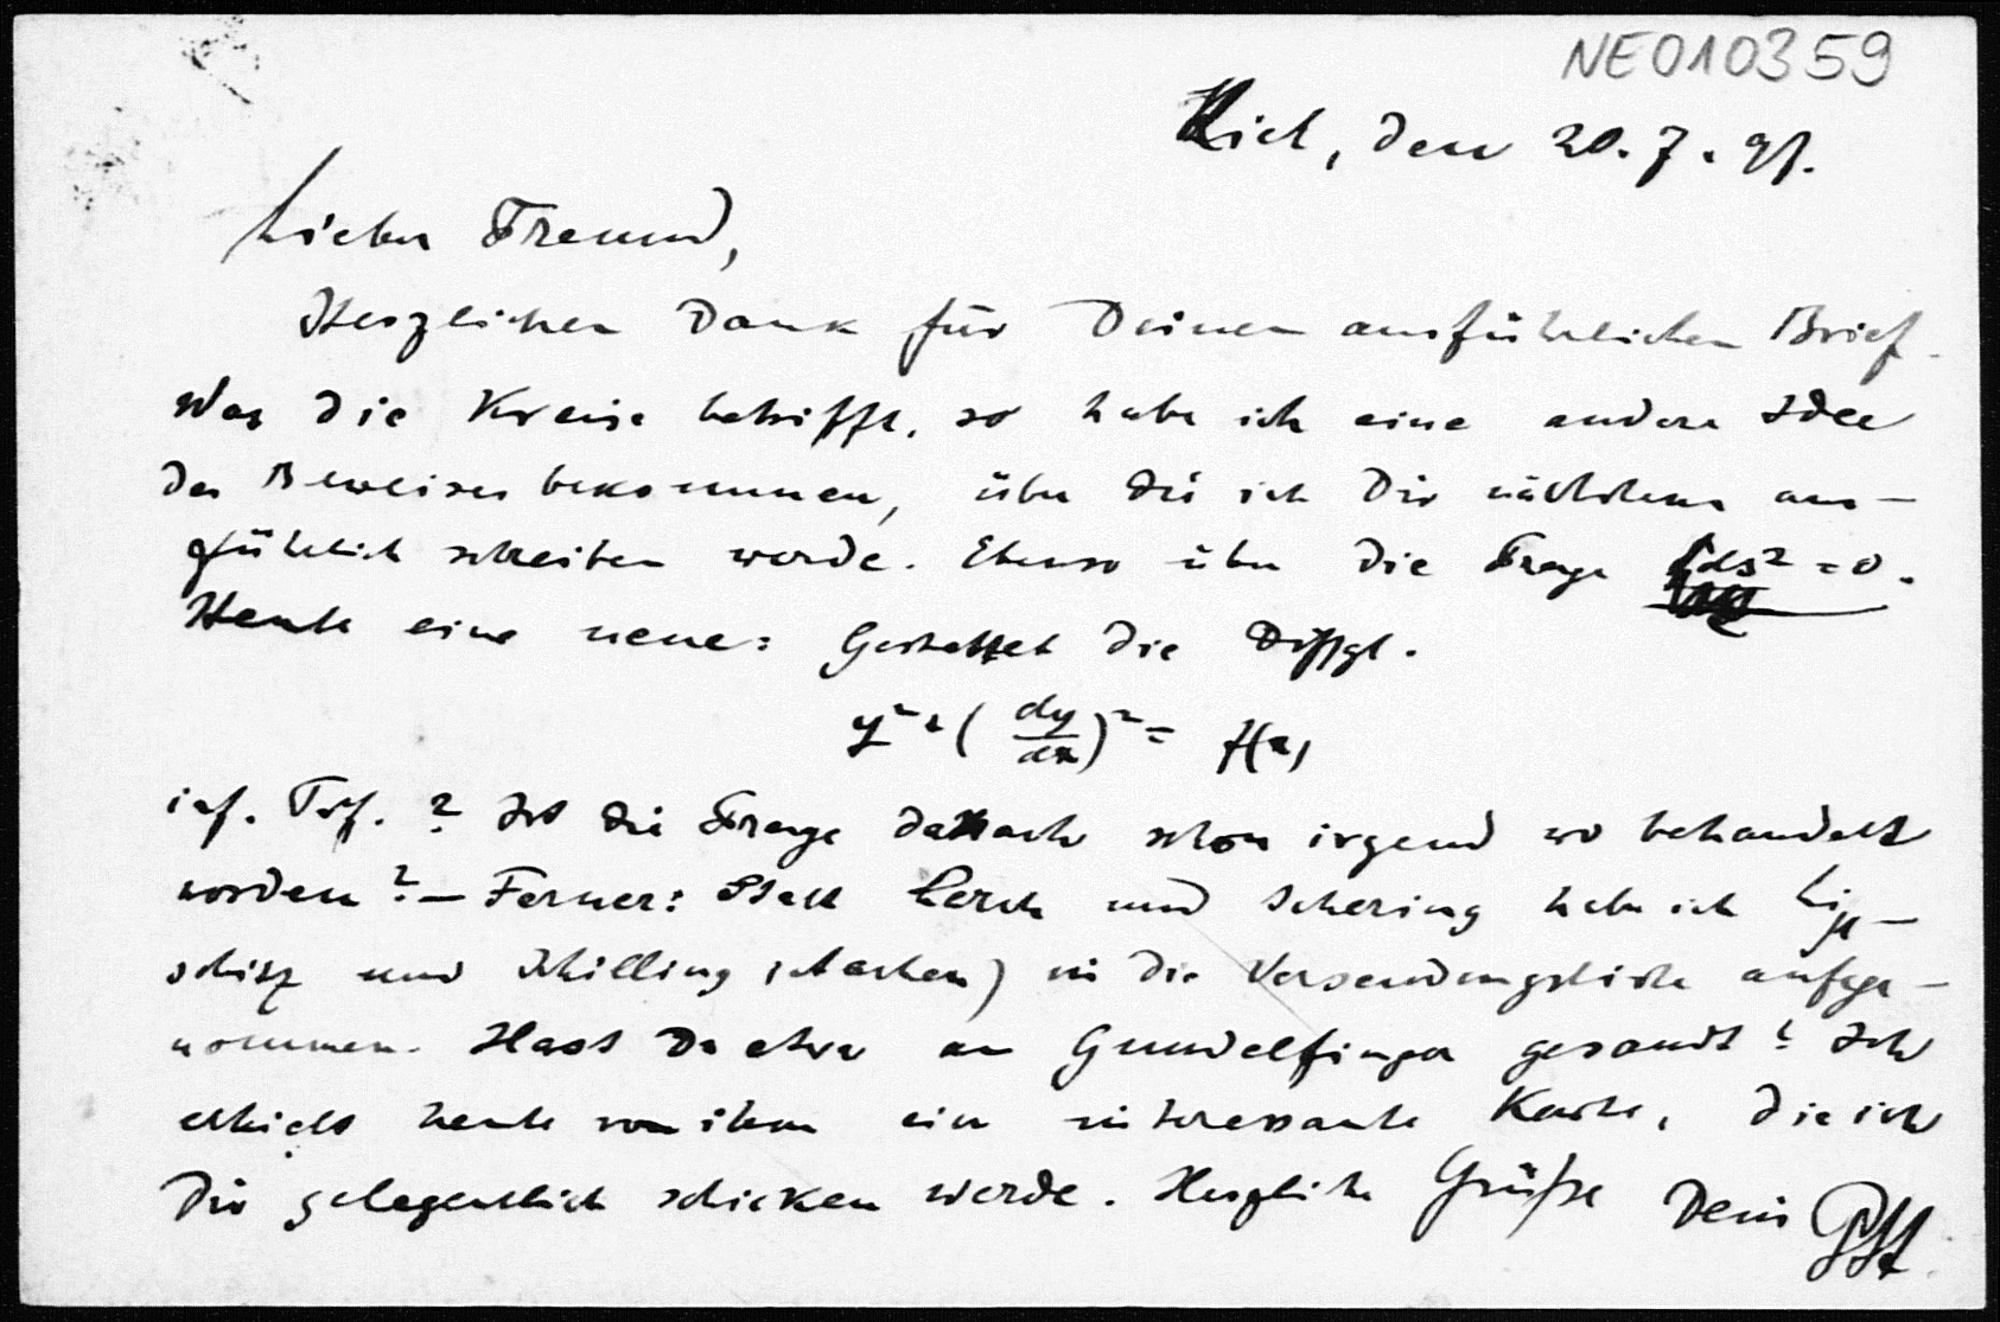 NE010359
Kiel, den 20.7.97.
Lieber Freund,
Herzlichen Dank für Deinen ausführlichen Brief.
Was die Kreise betrifft, so habe ich eine andere Idee
des Beweises bekommen, über die ich Dir nächstens aus-
führlich schreiben werde. Ebenso über die Frage ds² = 0.
Heute eine neue: Gestattet die Diffgl.
y² + (dy/dx)² = f(x)
inf. Trf.? Ist die Frage danach schon irgend wo behandelt
worden? – Ferner: Statt Lerch und Schering habe ich Lip-
schitz und Schilling (Aachen) in die Versendungsliste aufge-
nommen. Hast Du etwa an Gundelfinger gesandt? Ich
erhielt heute von ihm ein interessante Karte, die ich
Dir gelegentlich schicken werde. Herzliche Grüße Dein